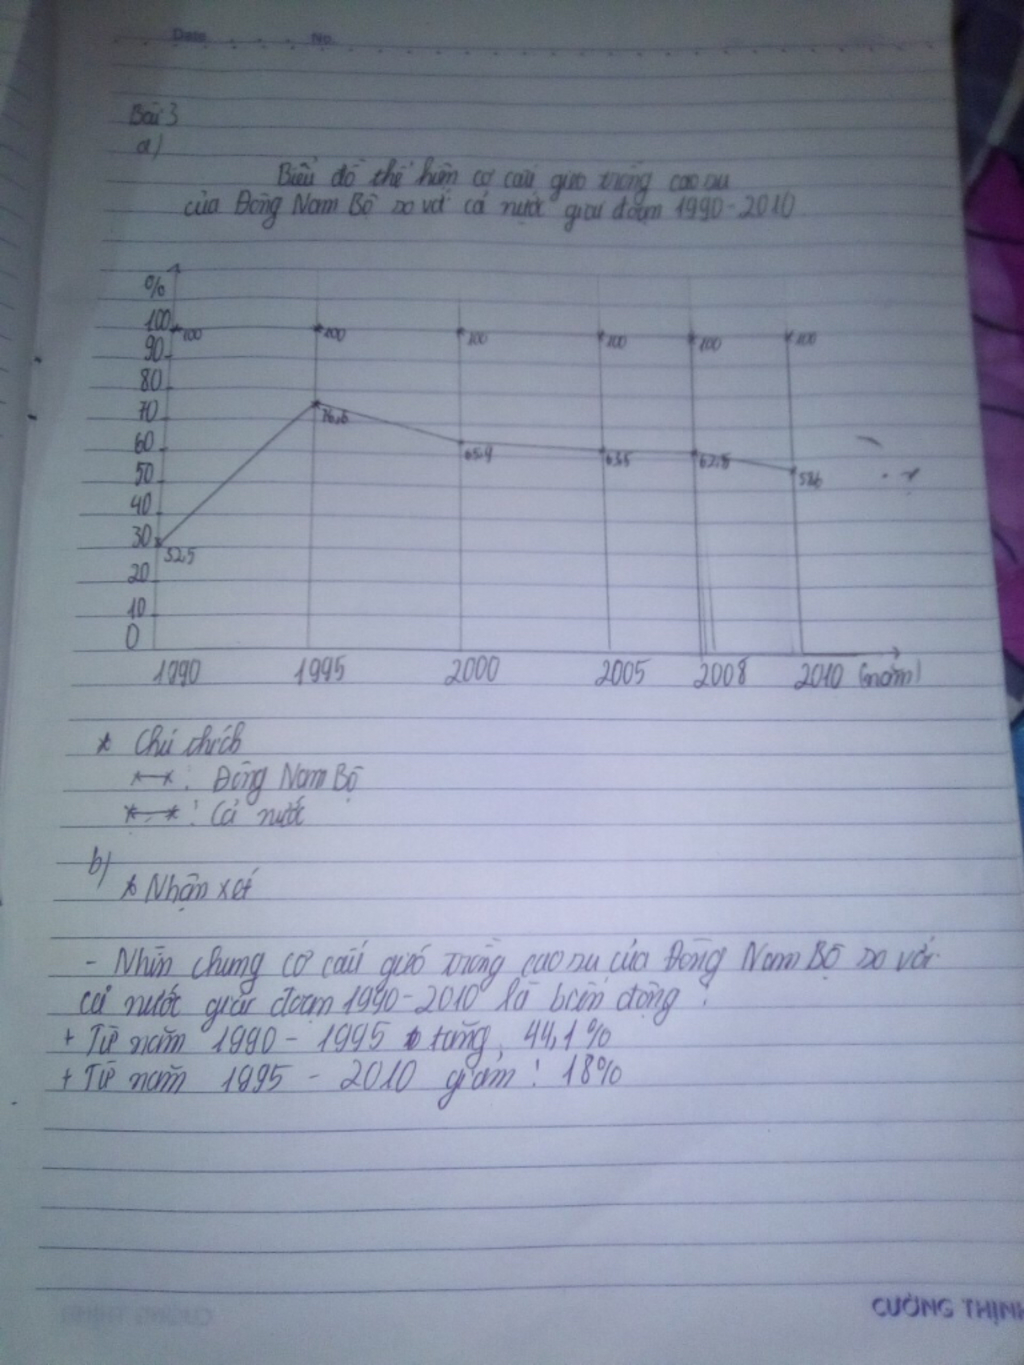 Date No.
Bài 3
a)
Biểu đồ thể hiện cơ cấu gieo trồng cao su
của Đông Nam Bộ so với cả nước giai đoạn 1990-2010
%
100 100 100 100 100 100 100
90
80
70 76,6
60 65,9 63,5 62,8
50 58,6
40
30 32,5
20
10
0
1990 1995 2000 2005 2008 2010 (năm)
* Chú thích
: Đông Nam Bộ
: Cả nước
b)
* Nhận xét
- Nhìn chung cơ cấu gieo trồng cao su của Đông Nam Bộ so với
cả nước giai đoạn 1990-2010 là biến động:
+ Từ năm 1990 - 1995 tăng: 44,1%
+ Từ năm 1995 - 2010 giảm: 18%
CƯỜNG THỊNH